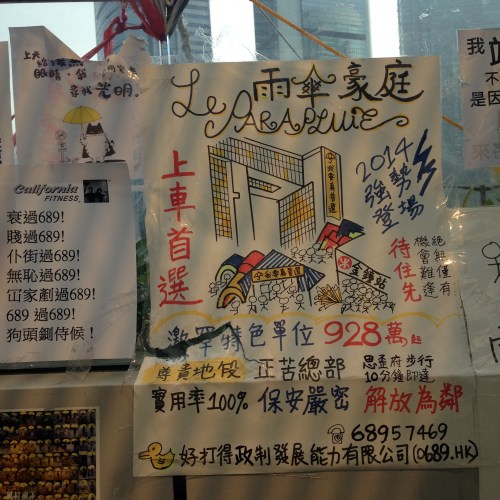 尋我光明。
California
FITNESS
衰過689!
賤過689!
仆街過689!
無恥過689!
冚家剷過689!
689 過689!
狗頭鍘侍候!
雨傘豪庭
Le PARAPLUIE
上車首選
2014
強勢
登場
待住先
絕無僅有
機會難逢
金鐘站
激罕特色單位 928萬起
尊貴地段 正苦總部 思歪府步行
10分鐘即達
實用率100% 保安嚴密 解放為鄰
☎68957469
好打得政制發展能力有限公司(0689.HK)
我
不
是因